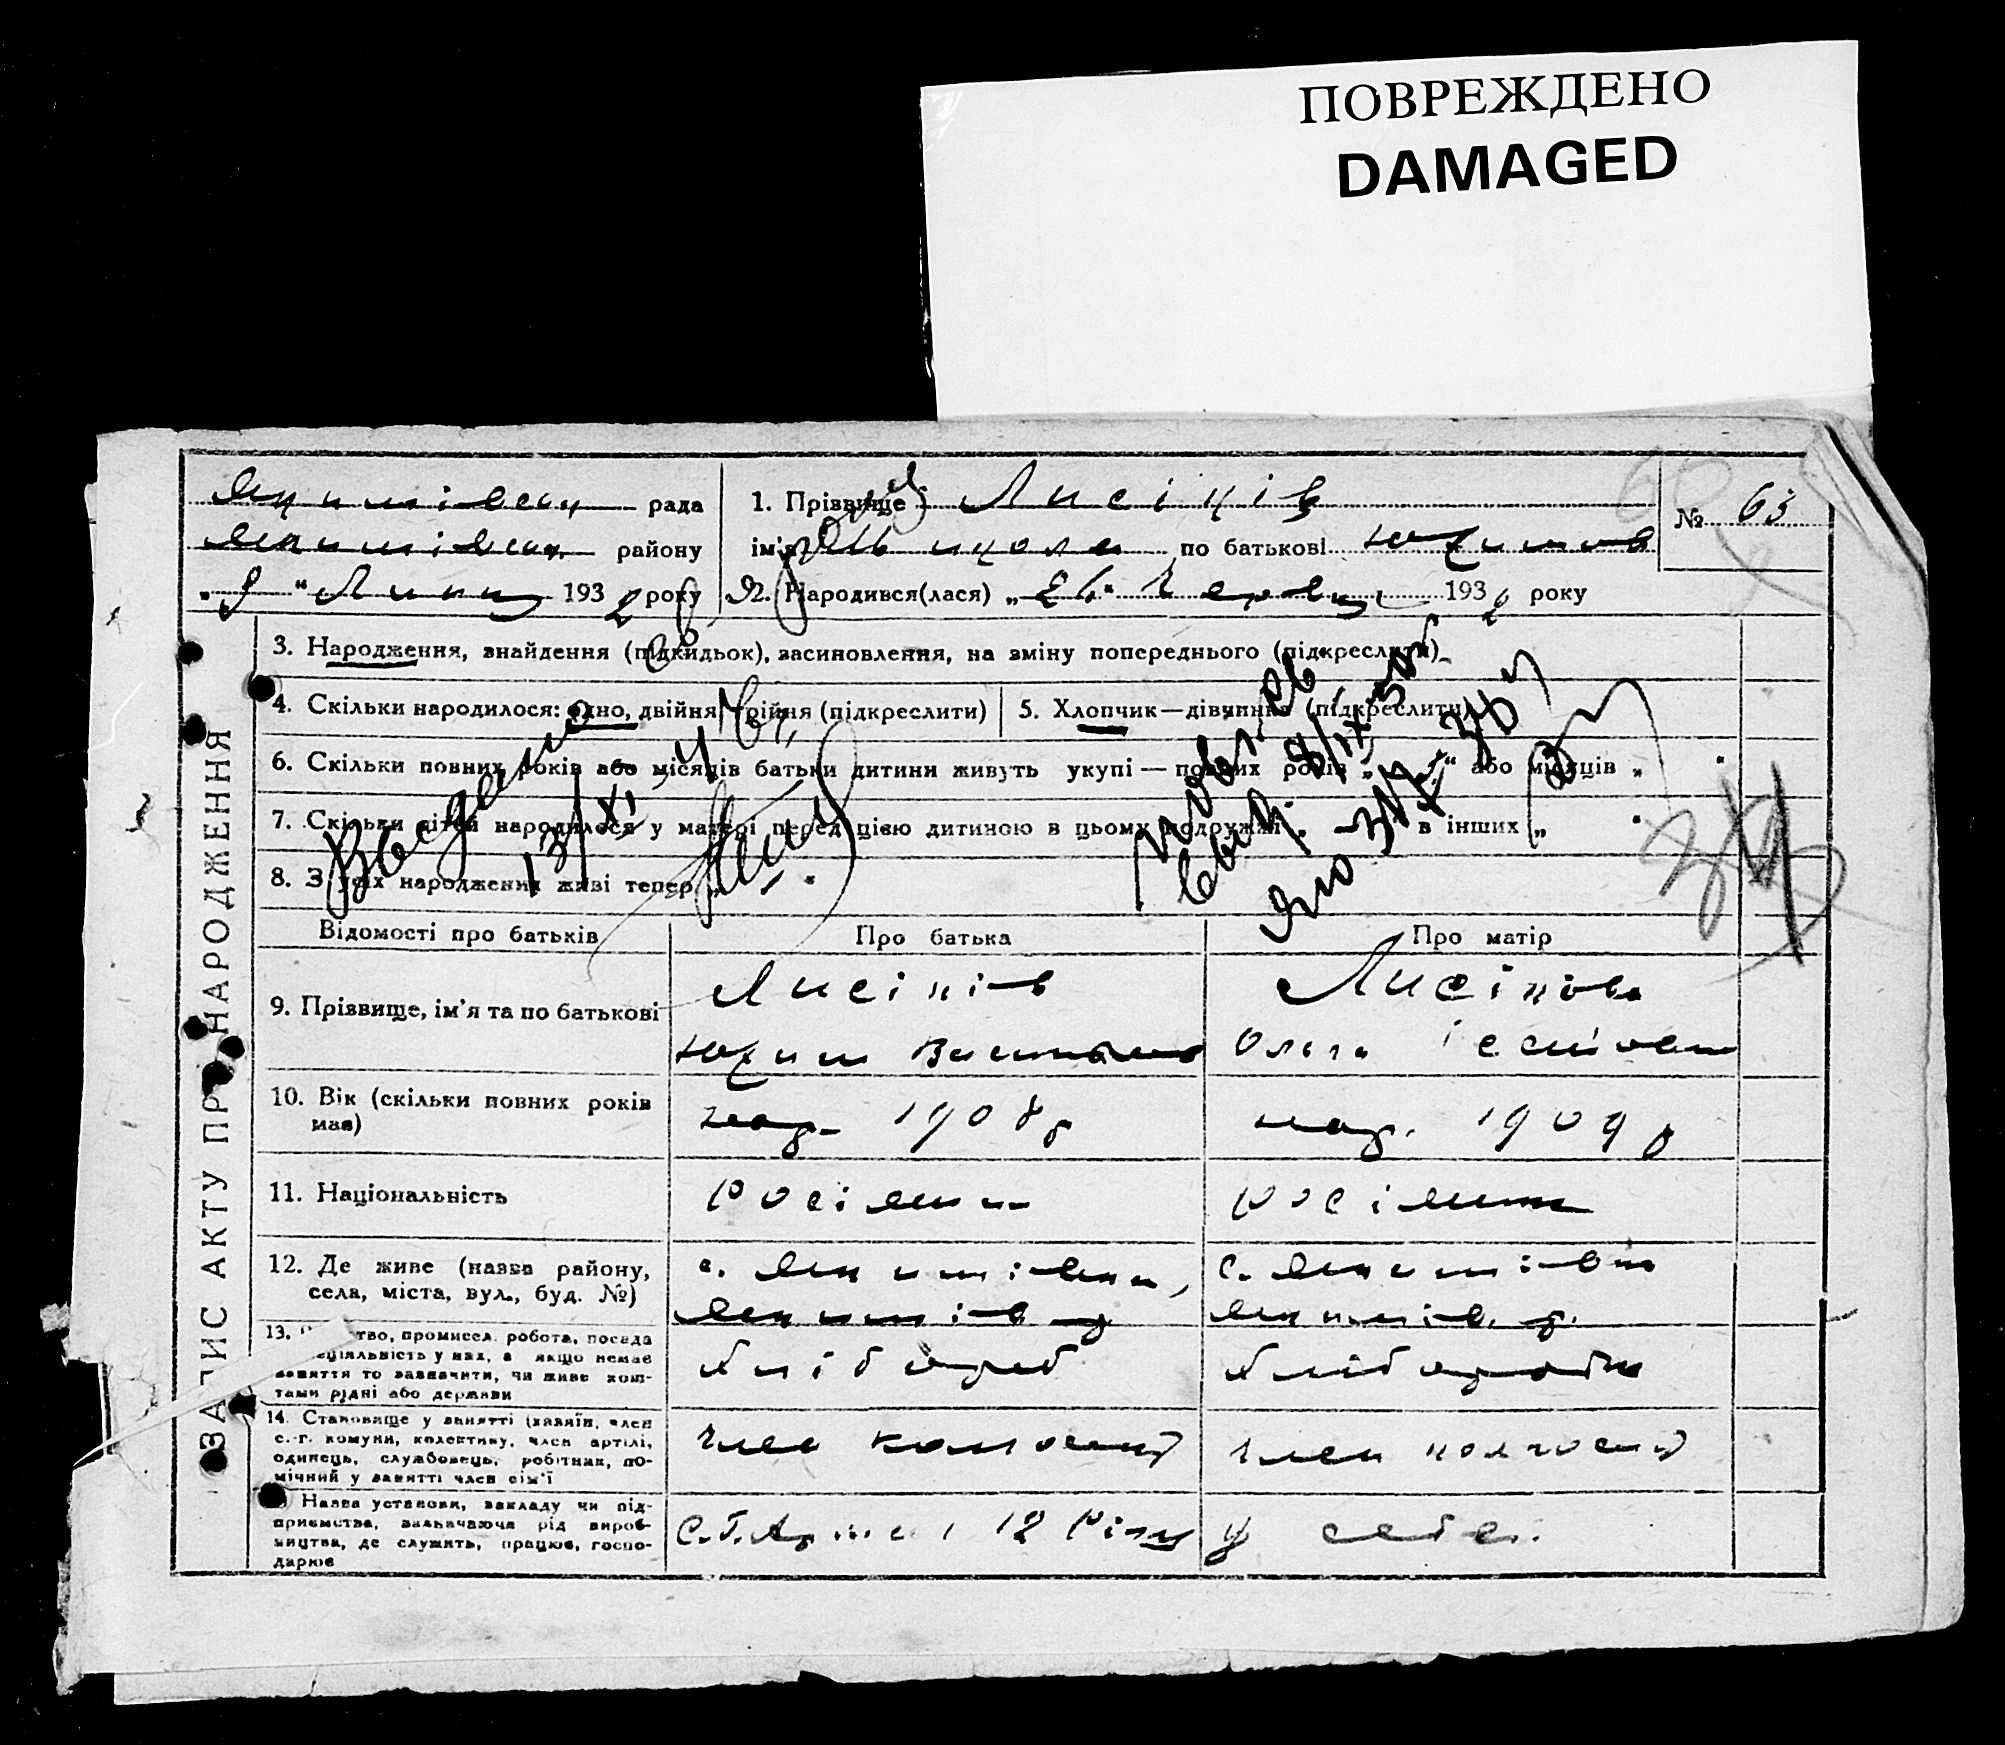 ПОВРЕЖДЕНО
DAMAGED
рада
району
" 9 " Липня 1932 року
1. Прізвище Лисіців
ім'я по батькові Юхимов
№ 63
2. Народився(лася) „26" Червця 1932 року
ЗАПИС АКТУ ПРО НАРОДЖЕННЯ
3. Народження, знайдення (підкидьок), засиновлення, на зміну попереднього (підкреслити)
4. Скільки народилося: одно, двійня, трійня (підкреслити)
5. Хлопчик—дівчинка (підкреслити)
6. Скільки повних років або місяців батьки дитини живуть укупі — повних років „ " або місяців „ "
7. Скільки дітей народилося у матері перед цією дитиною в цьому подружжі „ — " в інших „ "
8. З усіх народжених живі тепер „ — "
Видано
13/XI
Відомості про батьків
Про батька
Про матір
9. Прізвище, ім'я та по батькові
Лисіків
Юхим
Лисікова
Ольга
10. Вік (скільки повних років має)
нар. 1908 р
нар. 1909 р
11. Національність
росіянин
росіянка
12. Де живе (назва району, села, міста, вул., буд. №)
с. Якимівка,
Якимів р
с. Якимівка
Якимів. р.
13. тво, промисел, робота, посада
ціяльність у них, а якщо немає
заняття то зазначити, чи живе кош-
тами рідні або держави
Хлібороб
Хлібороба
14. Становище у занятті (хазяїн, член
с.-г. комуни, колективу, член артілі,
одинець, службовець, робітник, по-
мічний у занятті член сім'ї
член колгоспу
член колгоспу
Назва установи, закладу чи під-
приємства, зазначаючи рід вироб-
ництва, де служить, працює, госпо-
дарює
С.Г. Артіл 12 Річчя
у себе.